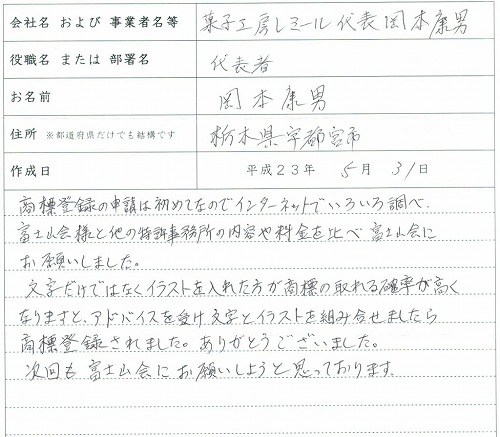 会社名 および 事業者名等 菓子工房レミール 代表 岡本康男
役職名 または 部署名 代表者
お名前 岡本康男
住所 ※都道府県だけでも結構です 栃木県宇都宮市
作成日 平成23年 5月 31日
商標登録の申請は初めてなのでインターネットでいろいろ調べ、
富士山会様と他の特許事務所の内容や料金を比べ富士山会に
お願いしました。
文字だけではなくイラストを入れた方が商標の取れる確率が高く
なりますと、アドバイスを受け文字とイラストを組み合せましたら
商標登録されました。ありがとうございました。
次回も富士山会にお願いしようと思っております。